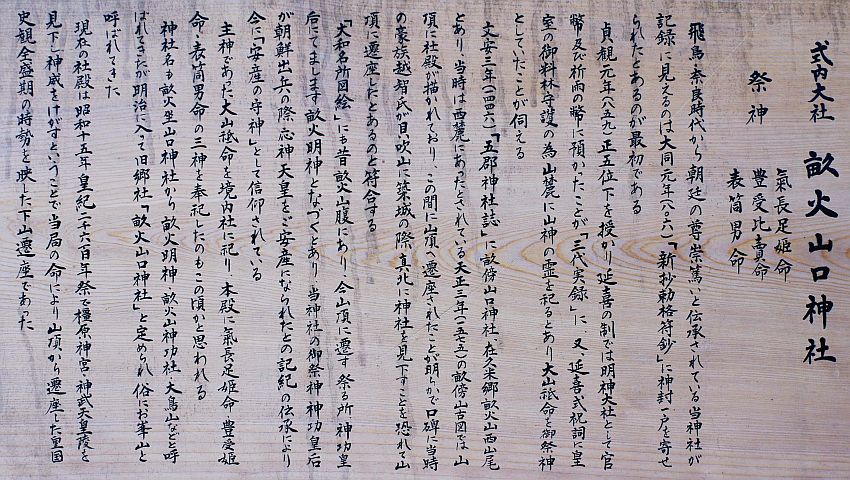 式内大社 畝火山口神社
祭神
氣長足姫命
豊受比売命
表筒男命
飛鳥・奈良時代から朝廷の尊崇篤いと伝承されている当神社が
記録に見えるのは大同元年(八〇六)「新抄勅格符鈔」に神封一戸を寄せ
られたとあるのが最初である
貞観元年(八五九)正五位下を授かり延喜の制では明神大社として官
幣及び祈雨の幣に預かったことが「三代実録」に、又、延喜式祝詞に皇
室の御料林守護の為山麓に山神の霊を祀るとあり大山祇命を御祭神
としていたことが伺える
文安三年(一四四六)「五郡神社誌」に畝傍山口神社 在久米郷畝火山西山尾
とあり、当時は西麓にあったとされている天正三年(一五七五)の畝傍山古図では山
頂に社殿が描かれており、この間に山頂へ遷座されたことが明らかで口碑に当時
の豪族越智氏が貝吹山に築城の際、真北に神社を見下すことを恐れて山
頂に遷座したとあるのと符合する
「大和名所図絵」にも昔畝火山腹にあり、今山頂に遷す 祭る所神功皇
后にてまします畝火明神となづくとあり、当神社の御祭神神功皇后
が朝鮮出兵の際、応神天皇をご安産になられたとの記紀の伝承により
今に「安産の守神」として信仰されている
主神であった大山祇命を境内社に祀り、本殿に氣長足姫命・豊受姫
命・表筒男命の三神を奉祀したのもこの頃かと思われる
神社名も畝火坐山口神社から畝火明神・畝火山神功社・大鳥山などと呼
ばれてきたが明治に入って旧郷社「畝火山口神社」と定められ俗にお峯山と
呼ばれてきた
現在の社殿は昭和十五年皇紀二千六百年祭で橿原神宮・神武天皇陵を
見下し神威をけがすということで当局の命により山頂から遷座した皇国
史観全盛期の時勢を映した下山遷座であった